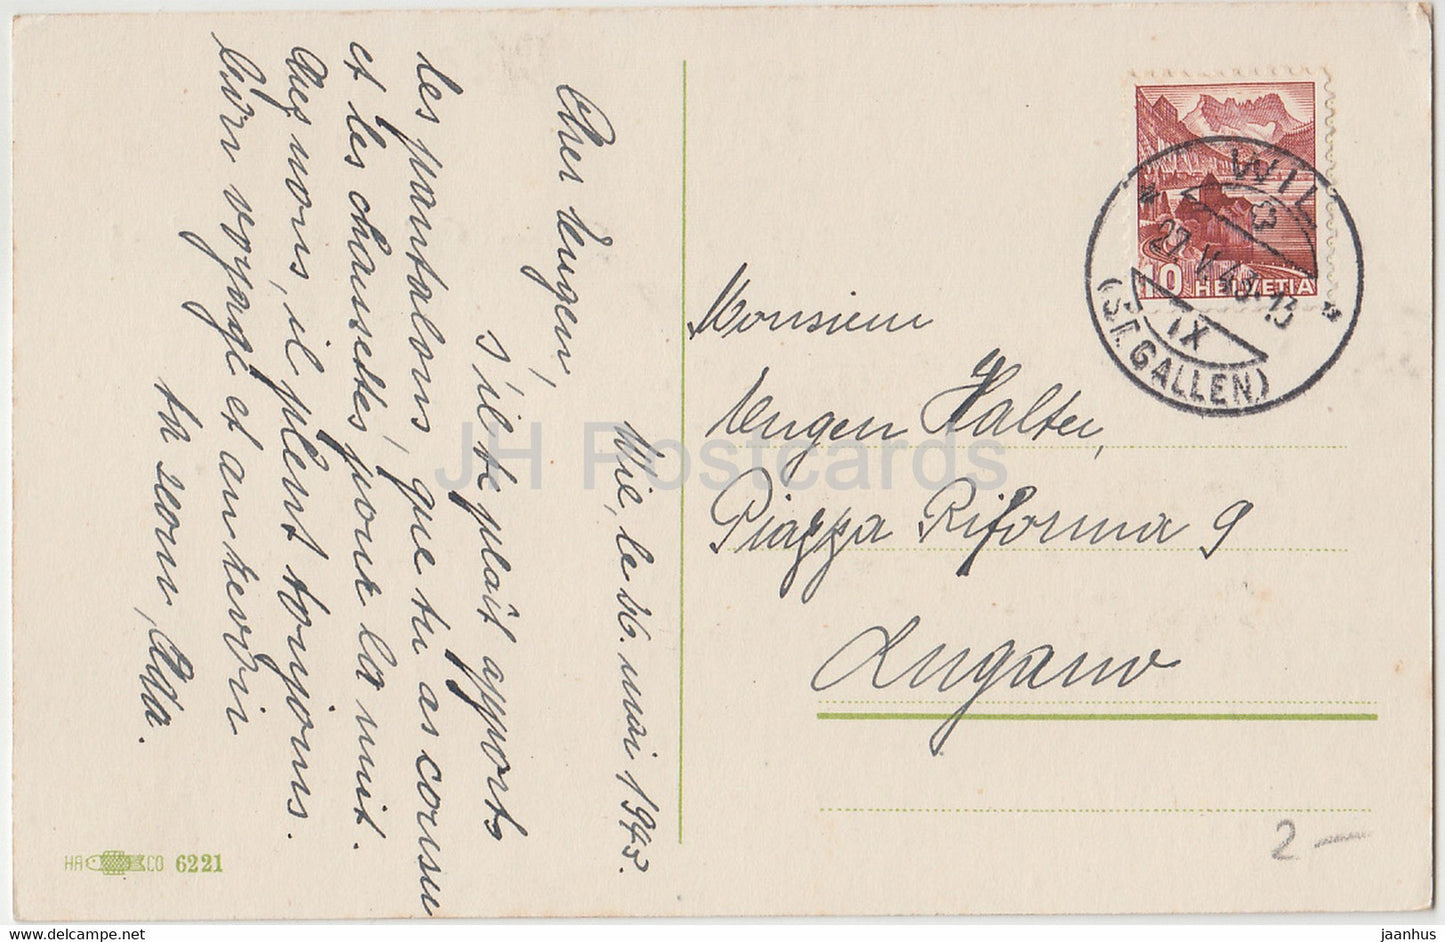 Wil, le 26. mai 1943.
Cher Eugen,
s'il te plaît apporte
les pantalons, que tu as cousu
et les chaussettes pour la nuit.
Chez nous, il pleut toujours.
bon voyage et au revoir
ta soeur, Atta.
Monsieur
Eugen Halter,
Piazza Riforma 9
Lugano
WIL
27.V.43.-13
IX
(ST. GALLEN)
10 HELVETIA
JH Postcards
HA CO 6221
2 –
jaanhus
delcampe.net